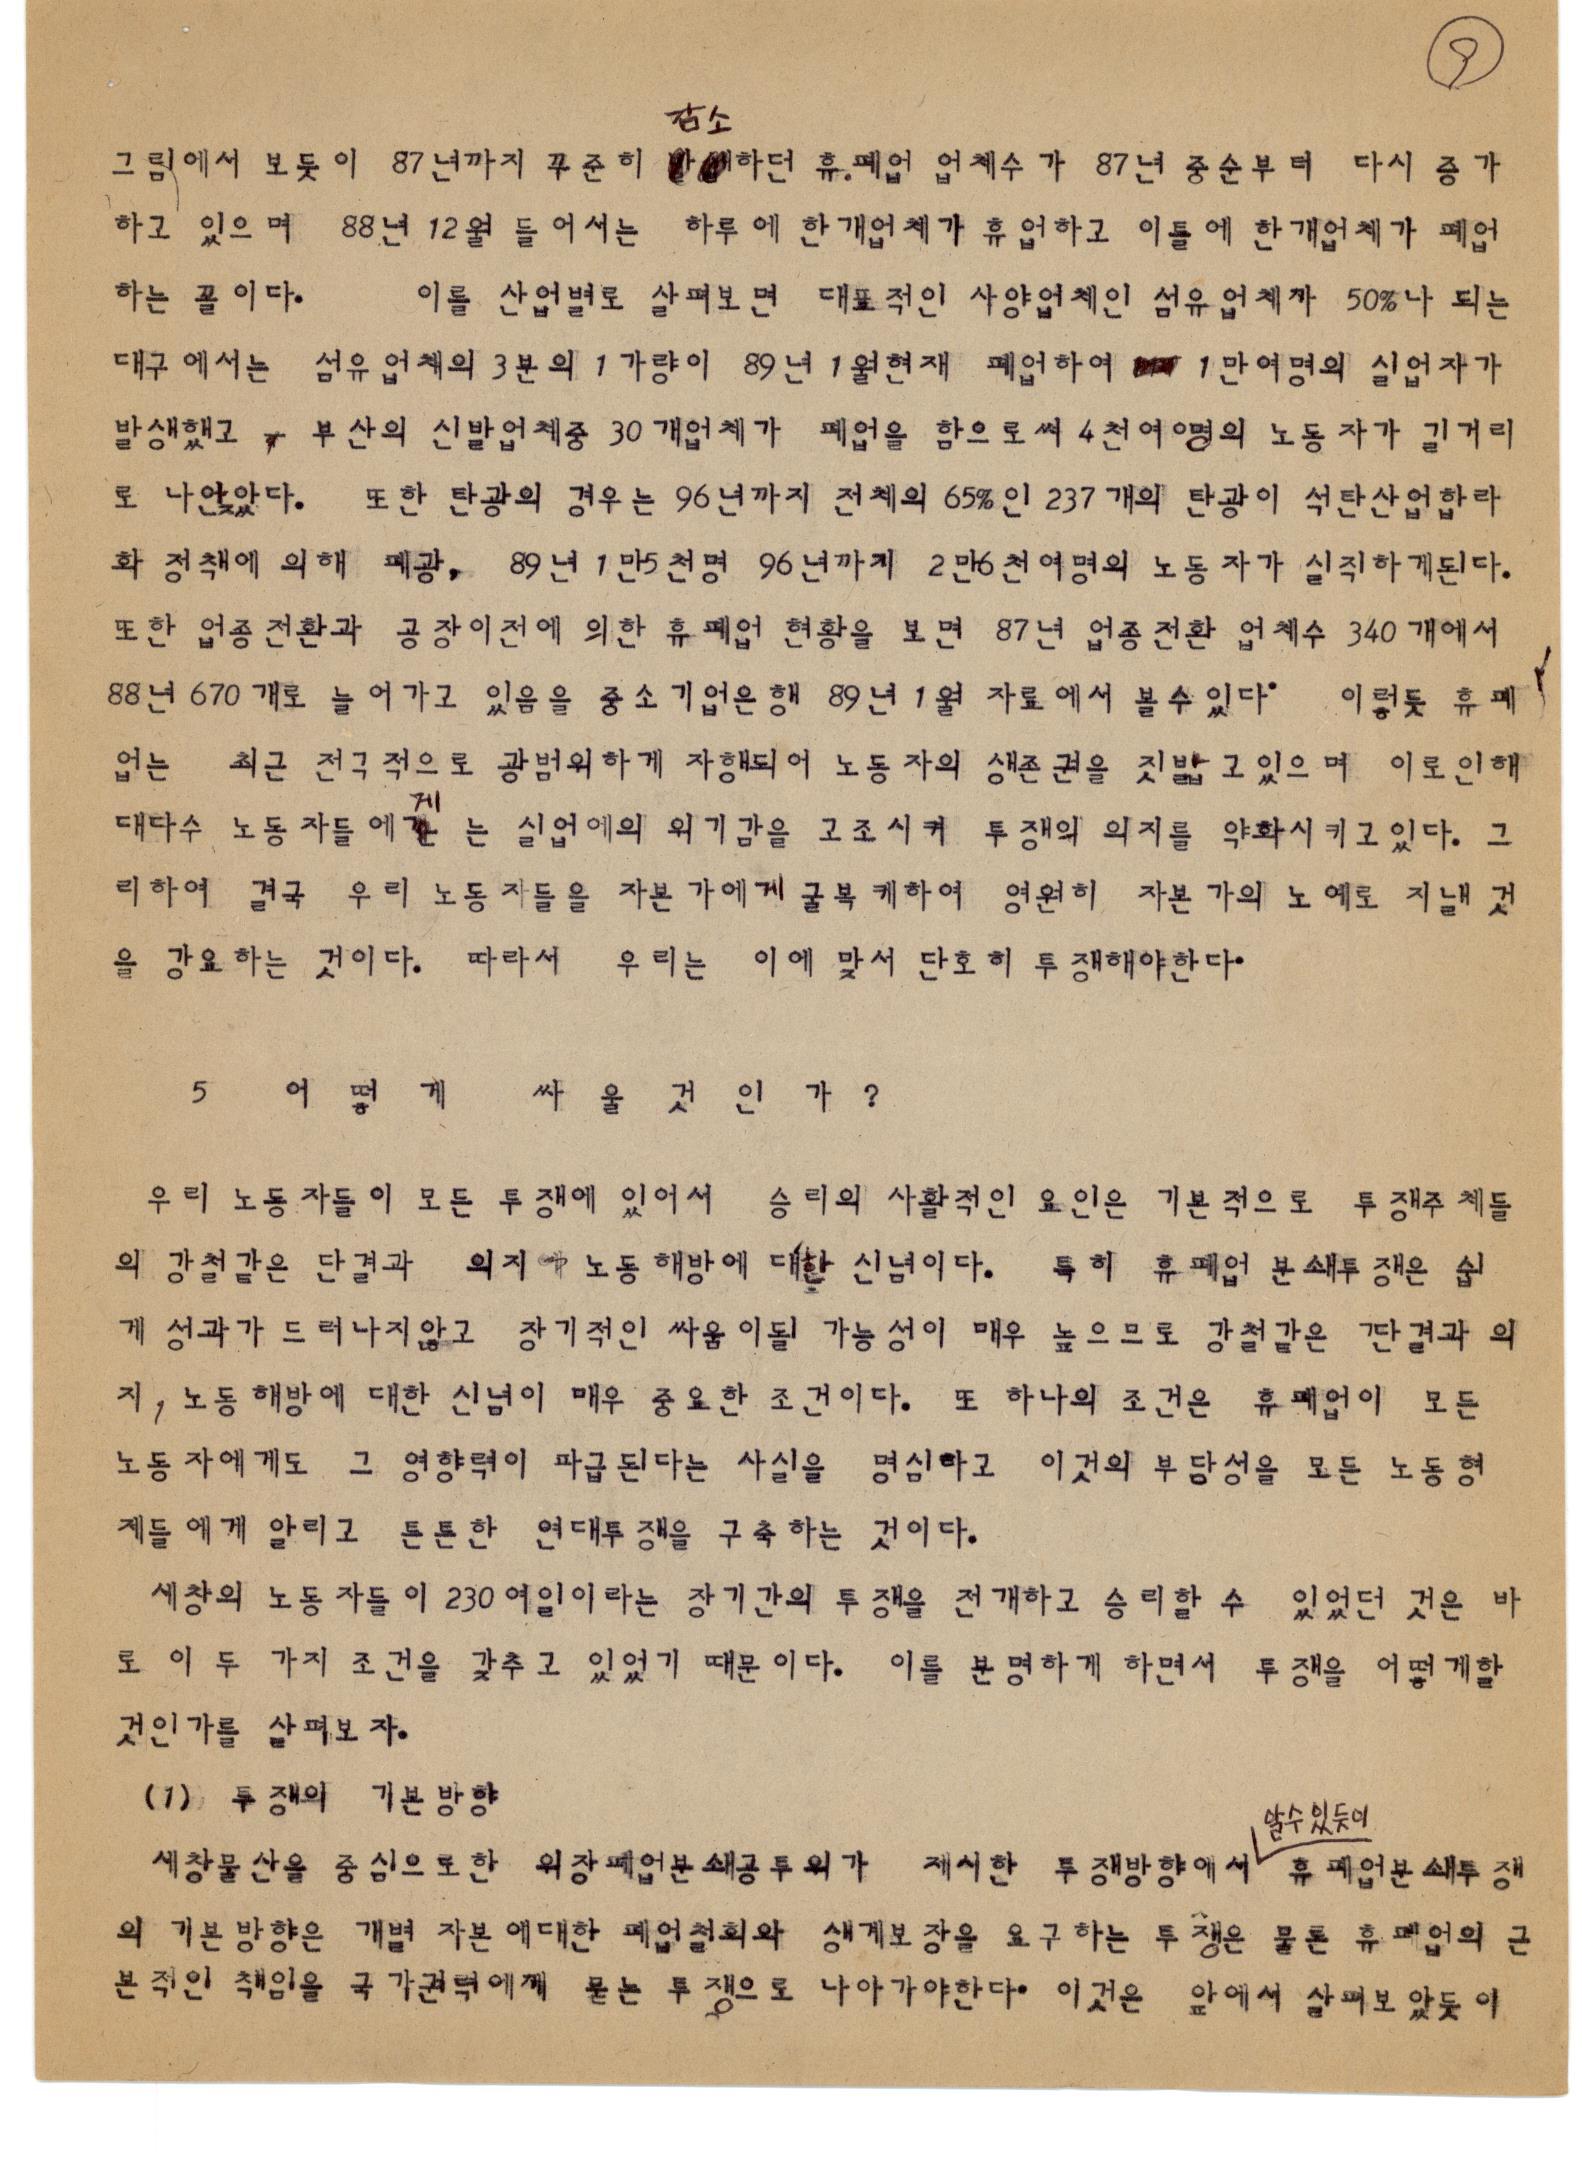 9
감소
그림에서 보듯이 87년까지 꾸준히 하던 휴.폐업 업체수가 87년 중순부터 다시 증가
하고 있으며 88년 12월 들어서는 하루에 한개업체가 휴업하고 이틀에 한개업체가 폐업
하는 꼴이다. 이를 산업별로 살펴보면 대표적인 사양업체인 섬유업체가 50%나 되는
대구에서는 섬유업체의 3분의 1가량이 89년 1월현재 폐업하여 1만여명의 실업자가
발생했고, 부산의 신발업체중 30개업체가 폐업을 함으로써 4천여명의 노동자가 길거리
로 나앉았다. 또한 탄광의 경우는 96년까지 전체의 65%인 237개의 탄광이 석탄산업합리
화 정책에 의해 폐광, 89년 1만5천명 96년까지 2만6천여명의 노동자가 실직하게된다.
또한 업종전환과 공장이전에 의한 휴폐업 현황을 보면 87년 업종전환 업체수 340개에서
88년 670개로 늘어가고 있음을 중소기업은행 89년 1월 자료에서 볼수있다. 이렇듯 휴폐
업는 최근 전국적으로 광범위하게 자행되어 노동자의 생존권을 짓밟고있으며 이로인해
대다수 노동자들에게 는 실업에의 위기감을 고조시켜 투쟁의 의지를 약화시키고있다. 그
리하여 결국 우리 노동자들을 자본가에게 굴복케하여 영원히 자본가의 노예로 지낼 것
을 강요하는 것이다. 따라서 우리는 이에 맞서 단호히 투쟁해야한다.
5 어떻게 싸울것인가?
우리 노동자들이 모든 투쟁에 있어서 승리의 사활적인 요인은 기본적으로 투쟁주체들
의 강철같은 단결과 의지 노동해방에 대한 신념이다. 특히 휴폐업 분쇄투쟁은 쉽
게 성과가 드러나지않고 장기적인 싸움이될 가능성이 매우 높으므로 강철같은 단결과 의
지, 노동해방에 대한 신념이 매우 중요한 조건이다. 또 하나의 조건은 휴폐업이 모든
노동자에게도 그 영향력이 파급된다는 사실을 명심하고 이것의 부당성을 모든 노동형
제들에게 알리고 튼튼한 연대투쟁을 구축하는 것이다.
세창의 노동자들이 230여일이라는 장기간의 투쟁을 전개하고 승리할 수 있었던 것은 바
로 이 두 가지 조건을 갖추고 있었기 때문이다. 이를 분명하게 하면서 투쟁을 어떻게할
것인가를 살펴보자.
(1) 투쟁의 기본방향
알수있듯이
세창물산을 중심으로한 위장폐업분쇄공투위가 제시한 투쟁방향에서 휴폐업분쇄투쟁
의 기본방향은 개별 자본에대한 폐업철회와 생계보장을 요구하는 투쟁은 물론 휴폐업의 근
본적인 책임을 국가권력에게 묻는 투쟁으로 나아가야한다. 이것은 앞에서 살펴보았듯이